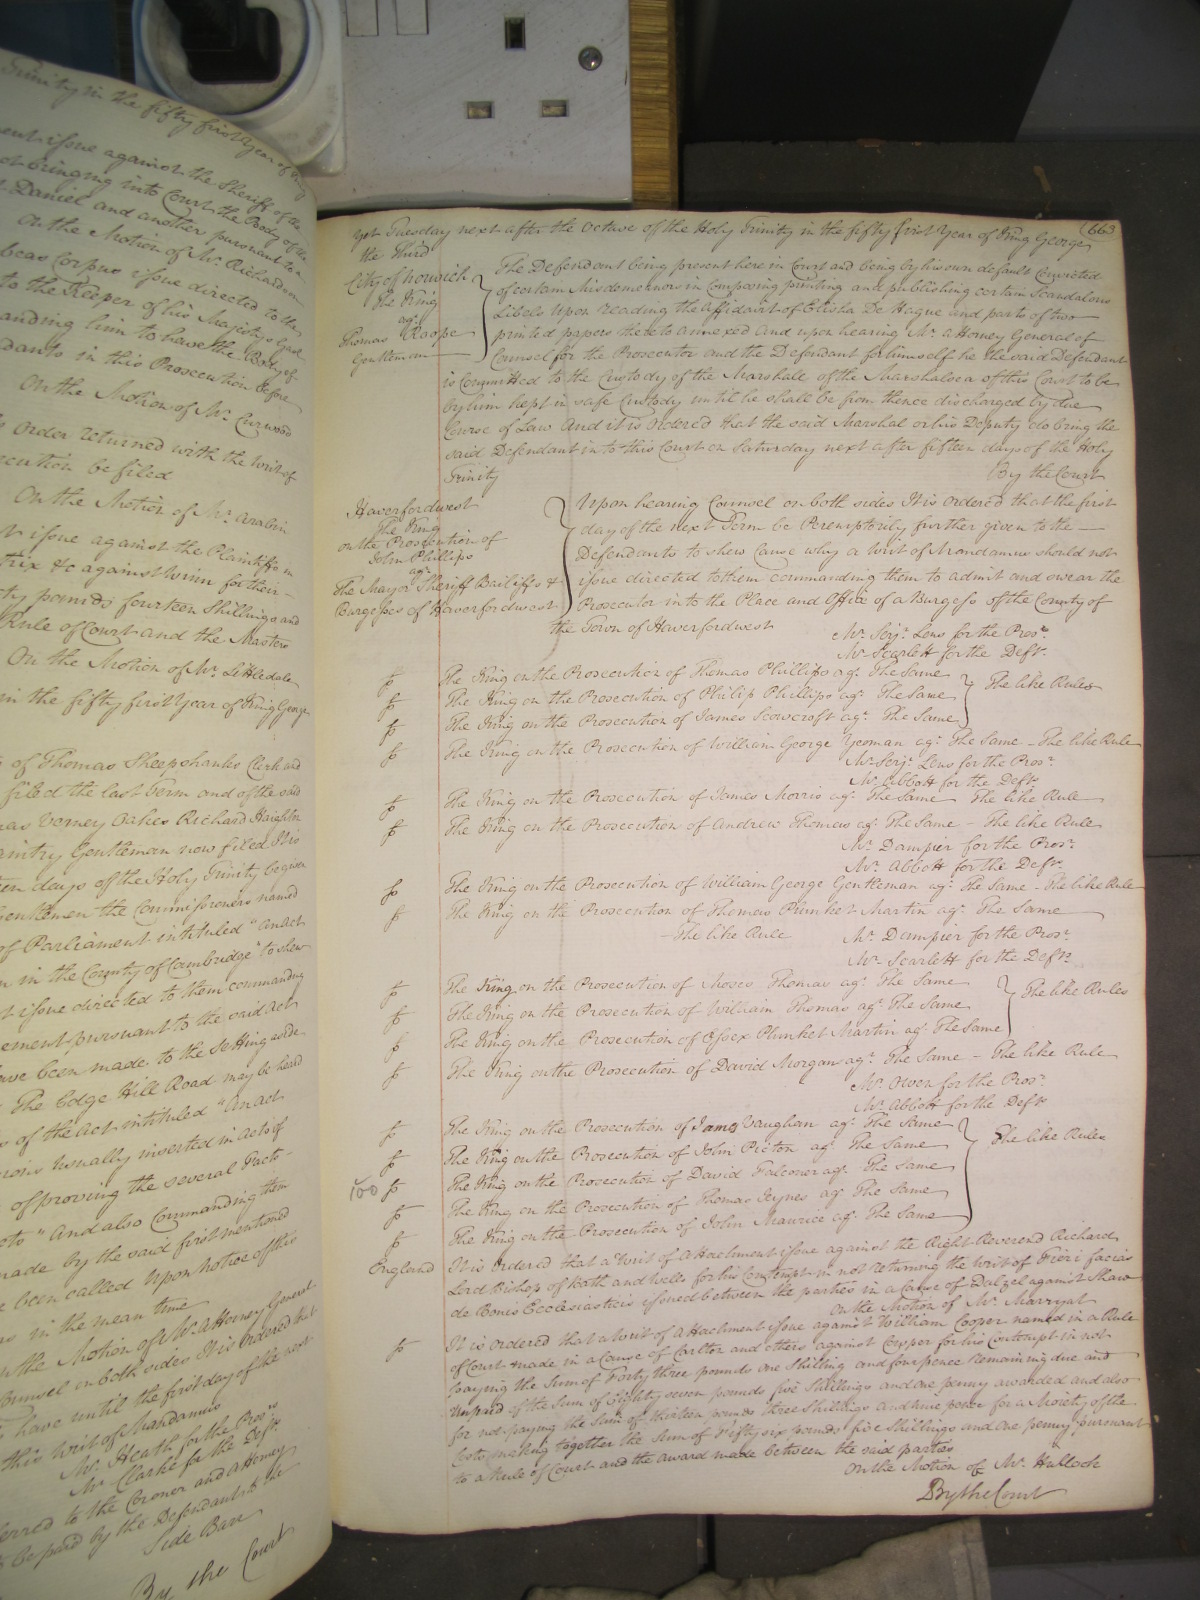 Trinity in the fifty first Year of King
ent issue against the Sheriff of the
ot bringing into Court the Body of the
t Daniel and another pursuant to a
On the Motion of Mr. Richardson
beas Corpus issue directed to the
to the Keeper of his Majestys Gaol
anding him to have the Body of
dants in this Prosecution before
On the Motion of Mr. Curwood
order returned with the Writ of
ecution be filed
On the Motion of Mr.
t issue against the Plaintiffs in
trix &c against Winn for their
ty pounds fourteen Shillings and
Rule of Court and the Masters
On the Motion of Mr. Littledale
in the fifty first Year of King George
of Thomas Sheepshanks Clerk and
filed the last Term and of the said
Verney Oakes Richard Haighton
aintry Gentleman now filed It is
en days of the Holy Trinity be given
Gentlemen the Commissioners named
of Parliament intituled "an Act
in the County of Cambridge" to shew
t issue directed to them commanding
ement pursuant to the said Act
ave been made to the setting aside
The Edge Hill Road may be heard
of the Act intituled "An Act
ions Usually inserted in Acts of
of proving the several Facts
cts" And also Commanding them
made by the said first mentioned
e been called Upon notice of this
in the mean time
n the Motion of Mr. Attorney General
Counsel on both sides It is Ordered that
have until the first day of the next
this Writ of Mandamus
Mr. Heath for the Prosrs.
Mr. Clarke for the Defts.
erred to the Coroner and Attorney
be paid by the Defendant to the
Side Barr
By the Court
663
Yet Tuesday next after the Octave of the Holy Trinity in the fifty first Year of King George
the Third
City of Norwich
The King
agt.
Thomas Roope
Gentleman
The Defendant being present here in Court and being by his own default Convicted
of certain Misdemeanors in Composing printing and publishing certain Scandalous
Libels Upon reading the Affidavit of Elisha De Hague and parts of two
printed papers thereto annexed And upon hearing Mr. Attorney General of
Counsel for the Prosecutor and the Defendant for himself he the said Defendant
is Committed to the Custody of the Marshall of the Marshalsea of this Court to be
by him kept in safe Custody until he shall be from thence discharged by due
Course of Law And it is Ordered that the said Marshal or his Deputy do bring the
said Defendant into this Court on Saturday next after fifteen days of the Holy
Trinity
By the Court
Haverfordwest
The King
on the Prosecution of
John Phillips
agt.
The Mayor Sheriff Bailiffs &
Burgesses of Haverfordwest
Upon hearing Counsel on both sides It is Ordered that the first
day of the next Term be Peremptorily further given to the
Defendants to shew Cause why a Writ of Mandamus should not
issue directed to them commanding them to admit and swear the
Prosecutor into the Place and Office of a Burgess of the County of
the Town of Haverfordwest
Mr. Serjt. Lens for the Prosr.
Mr. Scarlett for the Defts.
The King on the Prosecution of Thomas Phillips agt. The Same
The King on the Prosecution of Philip Phillips agt. The Same
The like Rules
The King on the Prosecution of James Scowcroft agt. The Same
The King on the Prosecution of William George Yeoman agt. The Same - The like Rule
Mr. Serjt. Lens for the Prosr.
Mr. Abbott for the Defts.
The King on the Prosecution of James Morris agt. The Same The like Rule
The King on the Prosecution of Andrew Thomas agt. The Same - The like Rule
Mr. Dampier for the Prosr.
Mr. Abbott for the Defts.
The King on the Prosecution of William George Gentleman agt. The Same - The like Rule
The King on the Prosecution of Thomas Plunket Martin agt. The Same
- The like Rule
Mr. Dampier for the Prosr.
Mr. Scarlett for the Defts.
The King on the Prosecution of Moses Thomas agt. The Same
The like Rules
The King on the Prosecution of William Thomas agt. The Same
The King on the Prosecution of Essex Plunket Martin agt. The Same
The King on the Prosecution of David Morgan agt. The Same - The like Rule
Mr. Owen for the Prosr.
Mr. Abbott for the Defts.
The King on the Prosecution of James Vaughan agt. The Same
The King on the Prosecution of John Picton agt. The Same
The like Rules
100
The King on the Prosecution of David Falconer agt. The Same
The King on the Prosecution of Thomas Jeynes agt. The Same
The King on the Prosecution of John Maurice agt. The Same
England
It is Ordered that a Writ of Attachment issue against the Right Reverend Richard
Lord Bishop of Bath and Wells for his Contempt in not returning the Writ of Fieri facias
de Bonis Ecclesiasticis issued between the parties in a Cause of Dalzel against Shaw
On the Motion of Mr. Marryat
It is Ordered that a Writ of Attachment issue against William Cooper named in a Rule
of Court made in a Cause of Carlter and others against Cowper for his Contempt in not
paying the Sum of Forty three pounds one shilling and fourpence Remaining due and
Unpaid of the Sum of Eighty seven pounds five Shillings and one penny awarded and also
for not paying the Sum of thirteen pounds three Shillings and nine pence for a Moiety of the
Costs making together the Sum of Fifty six pounds five Shillings and one penny pursuant
to a Rule of Court and the award made between the said parties
On the Motion of Mr. Hullock
By the Court